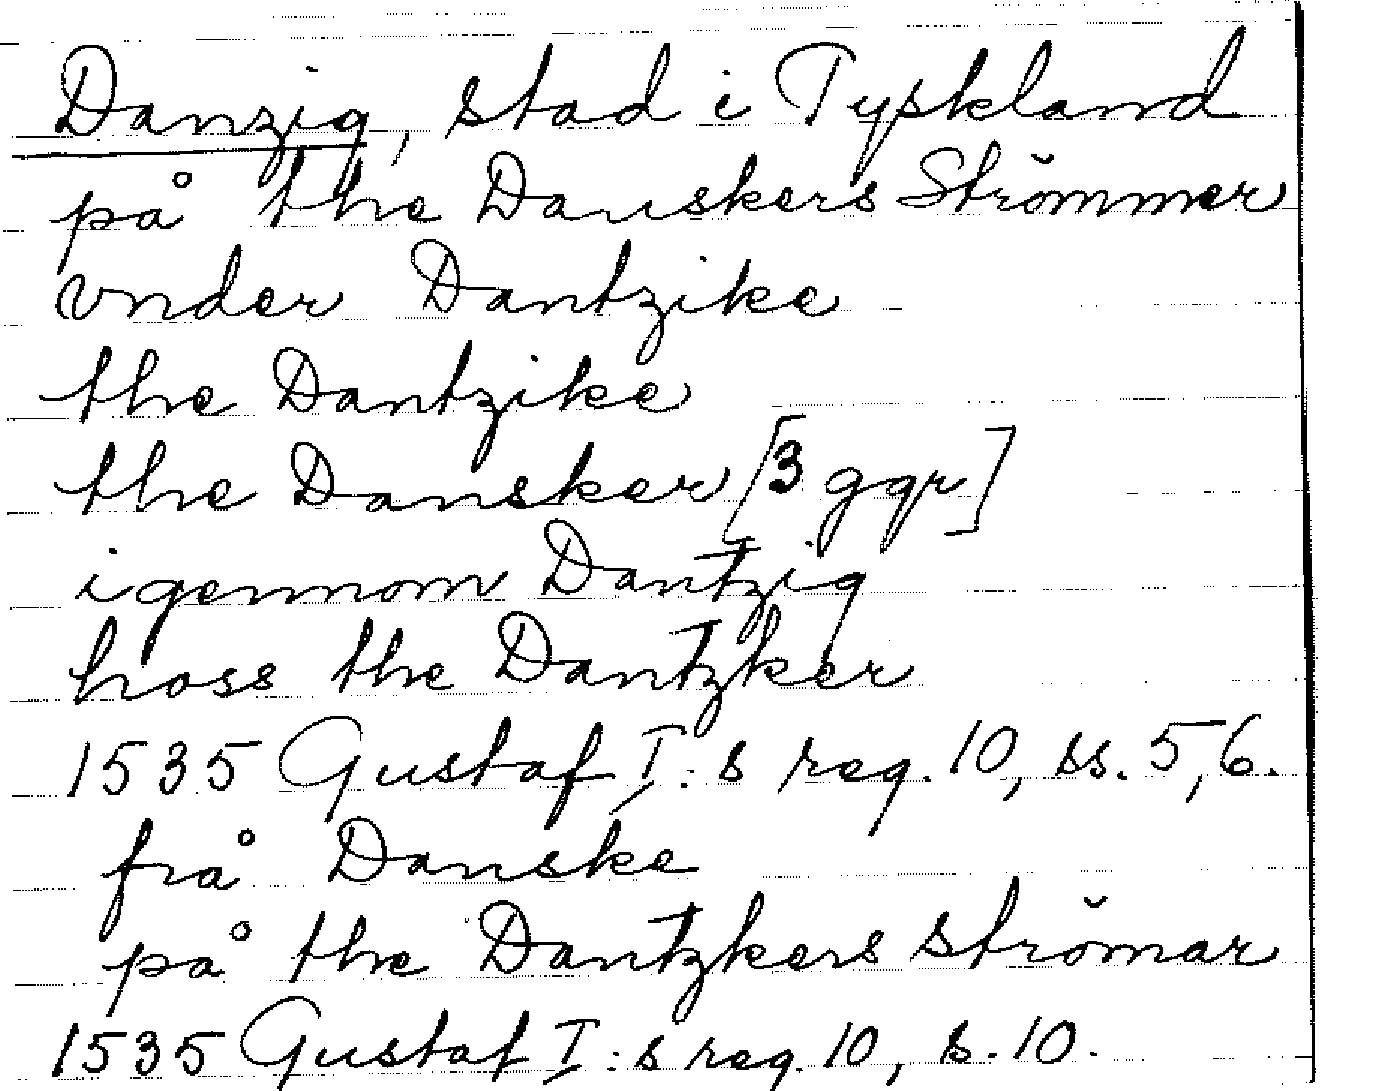 Danzig, stad i Tyskland
på the Danskers Strömmer
vnder Dantzike
the Dantzike
the Dansker [3 ggr]
igennom Dantzig
hoss the Dantzker
1535 Gustaf I:s reg. 10, ss. 5,6.
frå Danske
på the Dantzkers strömar
1535 Gustaf I:s reg. 10, s. 10.